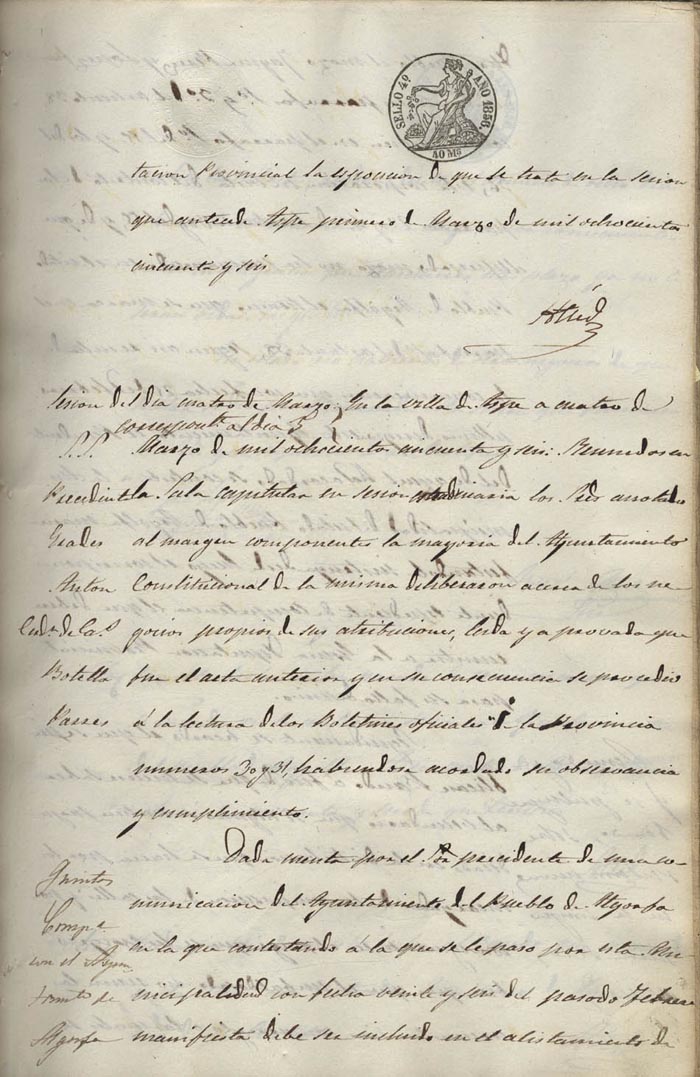 SELLO 4º AÑO 1856.
40 Ms
tacion Provincial la esposicion de que se trata en la sesion
que antecede Aspe primero de Marzo de mil ochocientos
cincuenta y seis
Sesion del dia cuatro de Marzo, En la villa de Aspe a cuatro de
correspondte al dia 3
S.S. Marzo de mil ochocientos cincuenta y seis: Reunidos en
Precidente la Sala capitular en sesion ordinaria los Sres anotados
Grades al margen componentes la mayoria del Ayuntamiento
Anton Constitucional de la misma deliberaron acerca de los ne-
gocios propios de sus atribuciones, leida y aprovada que
Botella fue el acta anterior y en su consecuencia se procedio
Parres á la lectura de los Boletines oficiales de la Provincia
numeros 30 y 31, habiendose acordado su observancia
y cumplimiento.
Dada cuenta por el Sor precidente de una co-
municacion del Ayuntamiento del Pueblo de Algorfa
Compe. en la que contestando á la que se le paso por esta Mu-
con el Ayun
tamto de nicipalidad con fecha veinte y seis del pasado Febrero
Algorfa manifiesta debe ser incluido en el alistamiento de